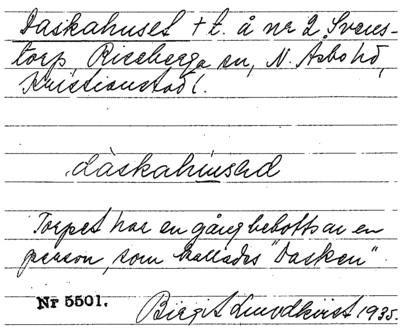 Daskahuset + t. å nr 2 Svens-
torp, Riseberga sn, N. Åsbo hd,
Kristianstads l.
dàskahúsəd
Torpet har en gång bebotts av en
person, som kallades "Dasken".
Nr 5501. Birgit Lundkvist 1935.